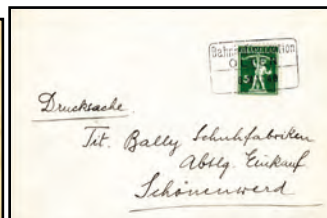 Drucksache.
Tit. Bally Schuhfabriken
Abtlg. Einkauf
Schönenwerd
5